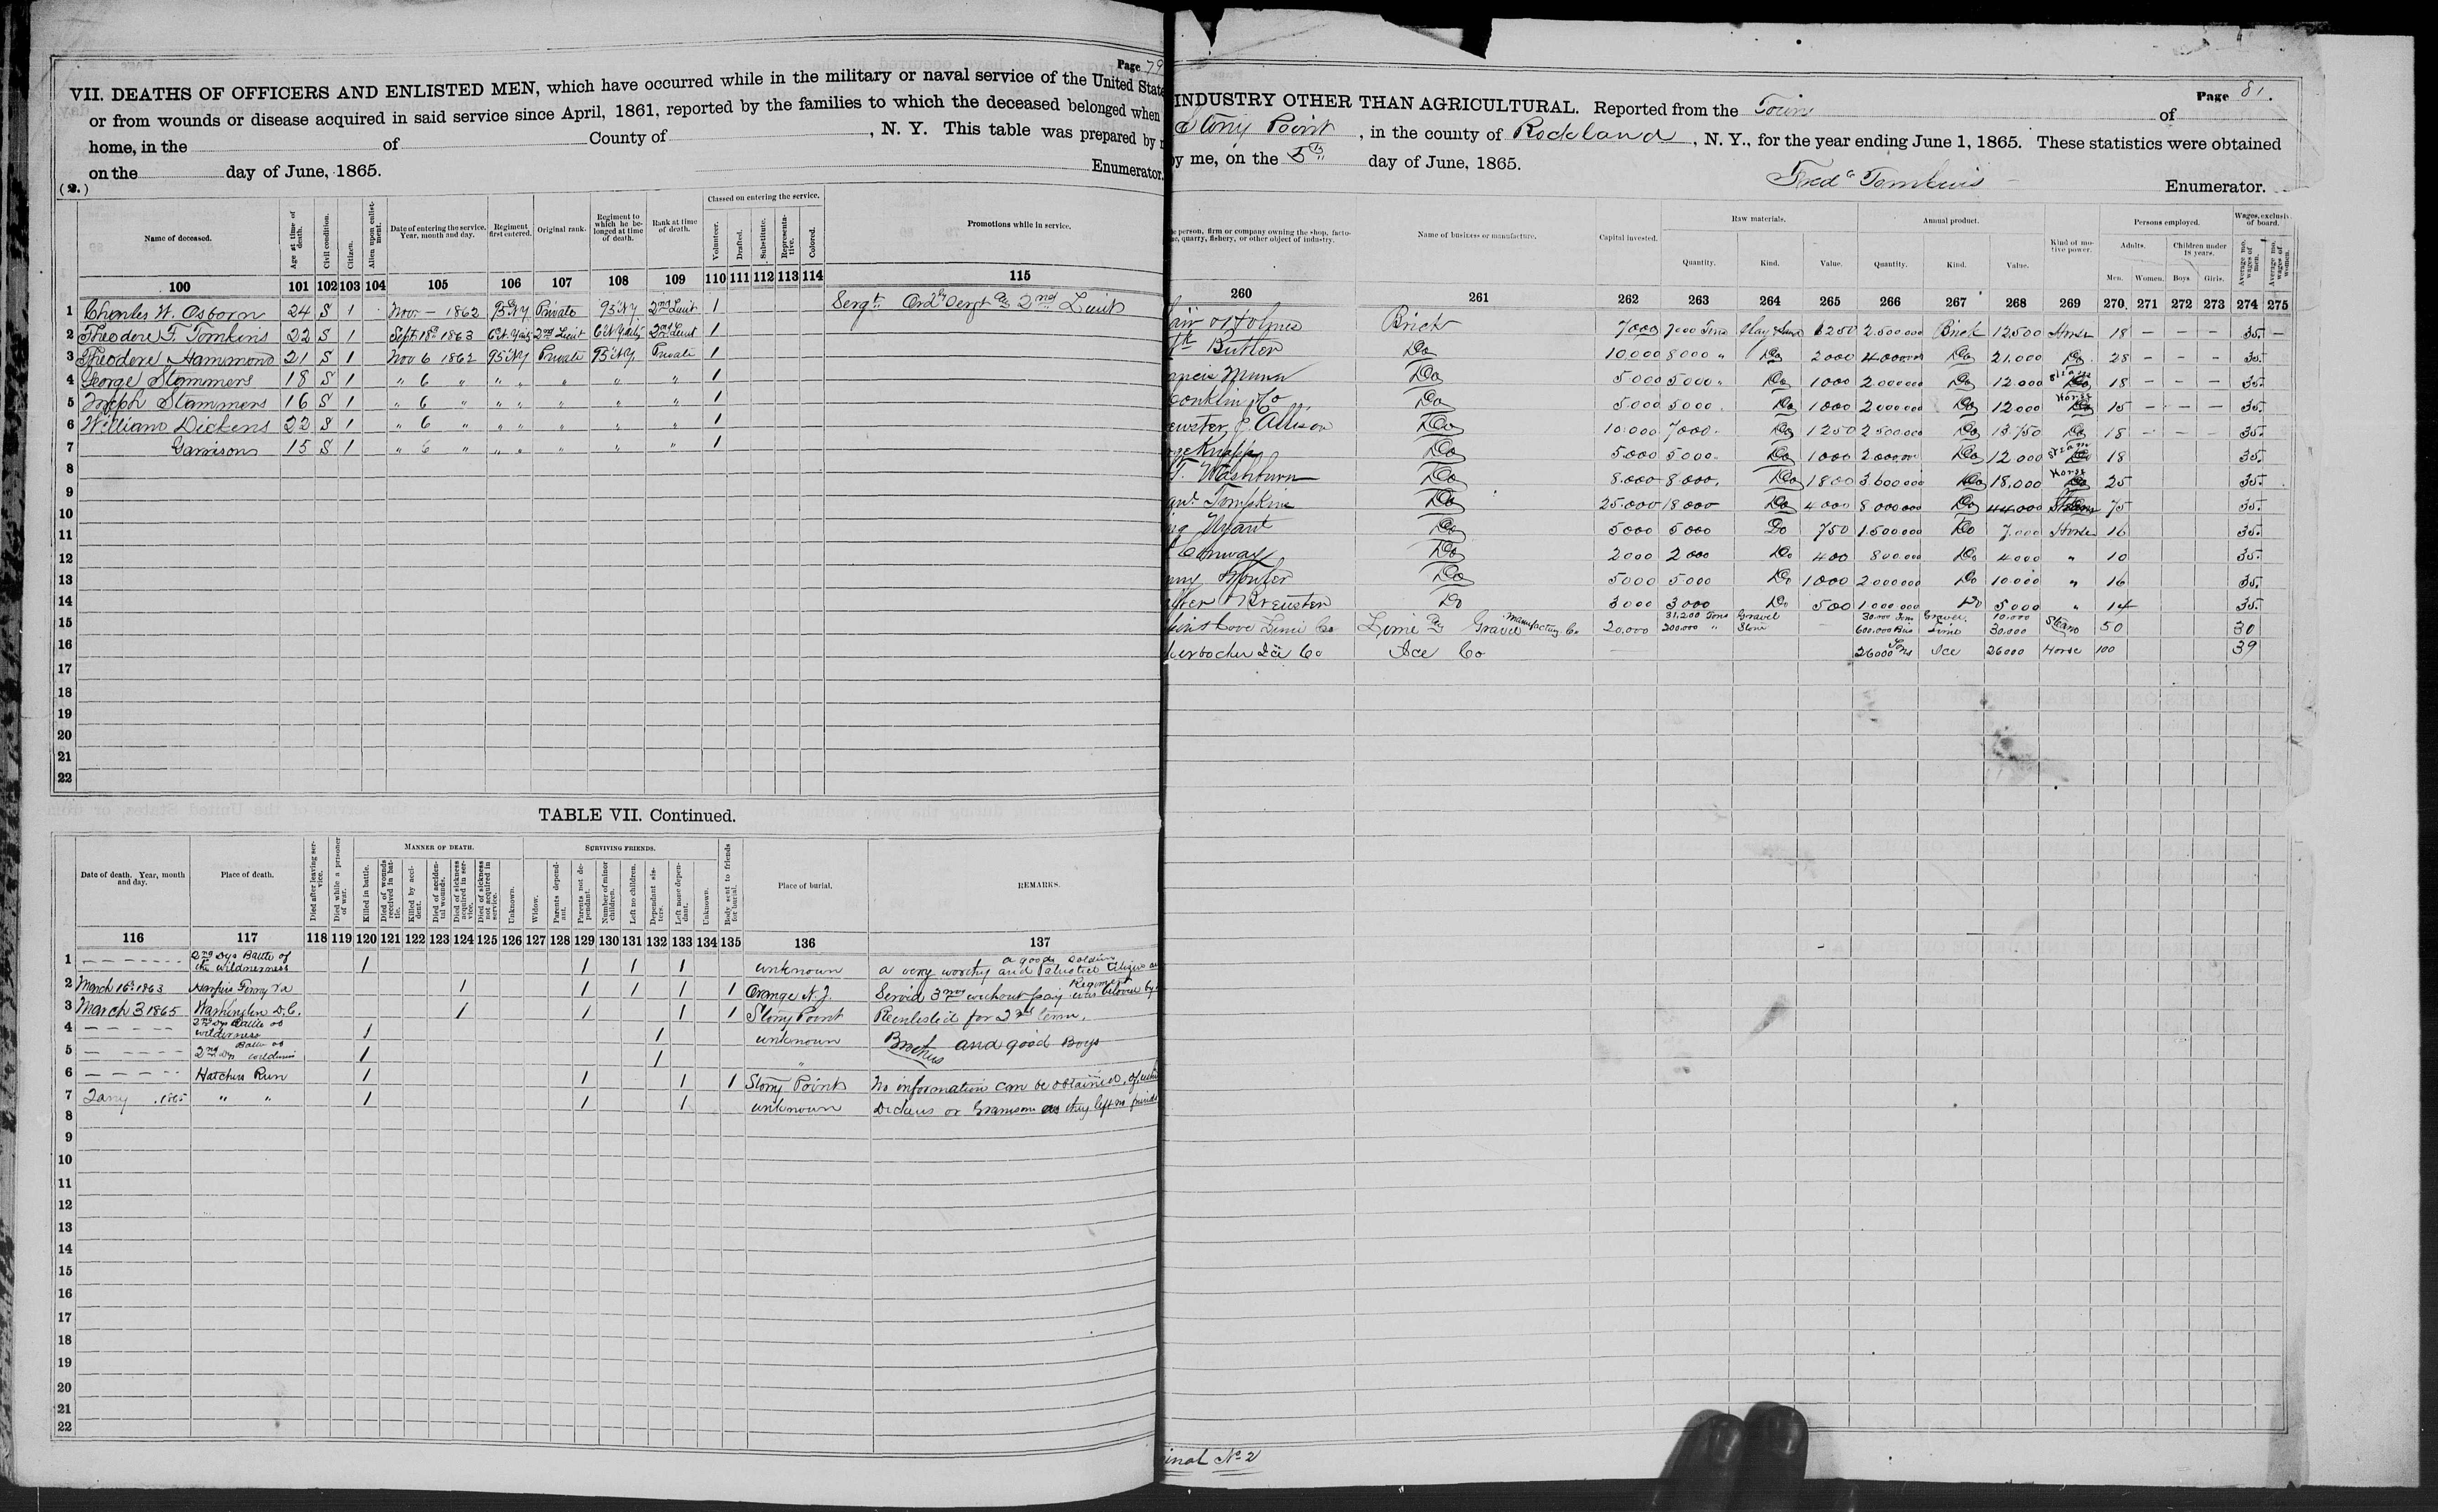 Page 79
VII. DEATHS OF OFFICERS AND ENLISTED MEN, which have occurred while in the military or naval service of the United State
or from wounds or disease acquired in said service since April, 1861, reported by the families to which the deceased belonged when
home, in the of County of , N. Y. This table was prepared by
on the day of June, 1865. Enumerator.
(2.)
Name of deceased. Age at time of death. Civil condition. Citizen. Alien upon enlistment. Date of entering the service. Year, month and day. Regiment first entered. Original rank. Regiment to which he belonged at time of death. Rank at time of death. Classed on entering the service. Volunteer. Drafted. Substitute. Representative. Colored. Promotions while in service.
100 101 102 103 104 105 106 107 108 109 110 111 112 113 114 115
1 Charles W. Osborn 24 S 1 Nov — 1862 95 NY Private 95 NY 2nd Leiut 1 Sergt Ordr Sergt & 2nd Leiut
2 Theodore F. Tomkins 22 S 1 Sept 18th 1863 2nd Leiut 2nd Leiut 1
3 Theodore Hammond 21 S 1 Nov 6 1862 95 NY Private 95 NY Private 1
4 George Stammers 18 S 1 " 6 " " " " " " 1
5 Joseph Stammers 16 S 1 " 6 " " " " " " 1
6 William Dickens 22 S 1 " 6 " " " " " " 1
7 Garrison 15 S 1 " 6 " " " " " " 1
8
9
10
11
12
13
14
15
16
17
18
19
20
21
22
TABLE VII. Continued.
Date of death. Year, month and day. Place of death. Died after leaving service. Died while a prisoner of war. MANNER OF DEATH. Killed in battle. Died of wounds received in battle. Killed by accident. Died of accidental wounds. Died of sickness acquired in service. Died of sickness not acquired in service. Unknown. SURVIVING FRIENDS. Widow. Parents dependant. Parents not dependant. Number of minor children. Left no children. Dependant sisters. Left none dependant. Unknown. Body sent to friends for burial. Place of burial. REMARKS.
116 117 118 119 120 121 122 123 124 125 126 127 128 129 130 131 132 133 134 135 136 137
1 — — — — 2nd Dys Battle of the wildnerness 1 1 1 1 unknown a very worthy and Patriotic Citizen a good Soldier
2 March 16th 1863 Harpers Ferry Va 1 1 1 1 1 Orange N.J. Served 3 mos without pay Regiment was beloved by
3 March 3 1865 Washington D.C. 1 1 1 1 Stony Point Reenlisted for 2nd term.
4 — — — — 2nd Dy Battle of wilderness 1 1 unknown Brothers and good Boys
5 — — — — 2nd Dys Battle of wilderness 1 1 "
6 — — — — Hatchers Run 1 1 1 1 Stony Point No information can be obtained, of either
7 Jany 1865 " " 1 1 1 unknown Dickens or Garrison as they left no friends
8
9
10
11
12
13
14
15
16
17
18
19
20
21
22
Page 81.
INDUSTRY OTHER THAN AGRICULTURAL. Reported from the Town of
Stony Point, in the county of Rockland, N. Y., for the year ending June 1, 1865. These statistics were obtained
by me, on the 5th day of June, 1865.
Fredk Tomkins Enumerator.
person, firm or company owning the shop, facto-
quarry, fishery, or other object of industry. Name of business or manufacture. Capital invested. Raw materials. Quantity. Kind. Value. Annual product. Quantity. Kind. Value. Kind of motive power. Persons employed. Adults. Men. Women. Children under 18 years. Boys Girls. Wages, exclusive of board. Average mo. wages of men. Average mo. wages of women.
260 261 262 263 264 265 266 267 268 269 270 271 272 273 274 275
Holmes Brick 7000 7000 Tons Clay & Sand 1250 2.500000 Brick 12500 Horse 18 — — — 35. —
Butler Do 10.000 8000 " Do 2000 4000000 Do 21.000 Do 28 — — — 35.
Munn Do 5000 5000 " Do 1000 2000000 Do 12.000 Steam 18 — — — 35.
Conklin & Co Do 5.000 5000 Do 1000 2000000 Do 12000 Horse 15 — — — 35.
& Allison Do 10.000 7000 Do 1250 2500.000 Do 13750 Do 18 — — — 35.
Knapp Do 5000 5000 Do 1000 2000.000 Do 12.000 Steam 18 35.
T. Washburn Do 8.000 8.000 Do 1800 3600000 Do 18.000 Horse 25 35.
Tompkins Do 25.000 18000 Do 4000 8000000 Do 44.000 Steam 75 35.
Wyant Do 5000 5000 Do 750 1.500000 Do 7.000 Horse 16 35.
Conway Do 2000 2000 Do 400 800.000 Do 4000 " 10 35.
Do 5000 5000 Do 1000 2000000 Do 10.000 " 16 35.
Brewster Do 3000 3000 Do 500 1.000000 Do 5000 " 14 35.
kins Cove Lime Co Lime & Gravel Manufacturing Co 20.000 31,200 Tons Gravel 200.000 " Stone 30.000 Tons Gravel 10.000 600.000 Bus Lime 30.000 Steam 50 30
kerbocker Ice Co Ice Co 26000 Tons Ice 26000 Horse 100 39
inal No 2